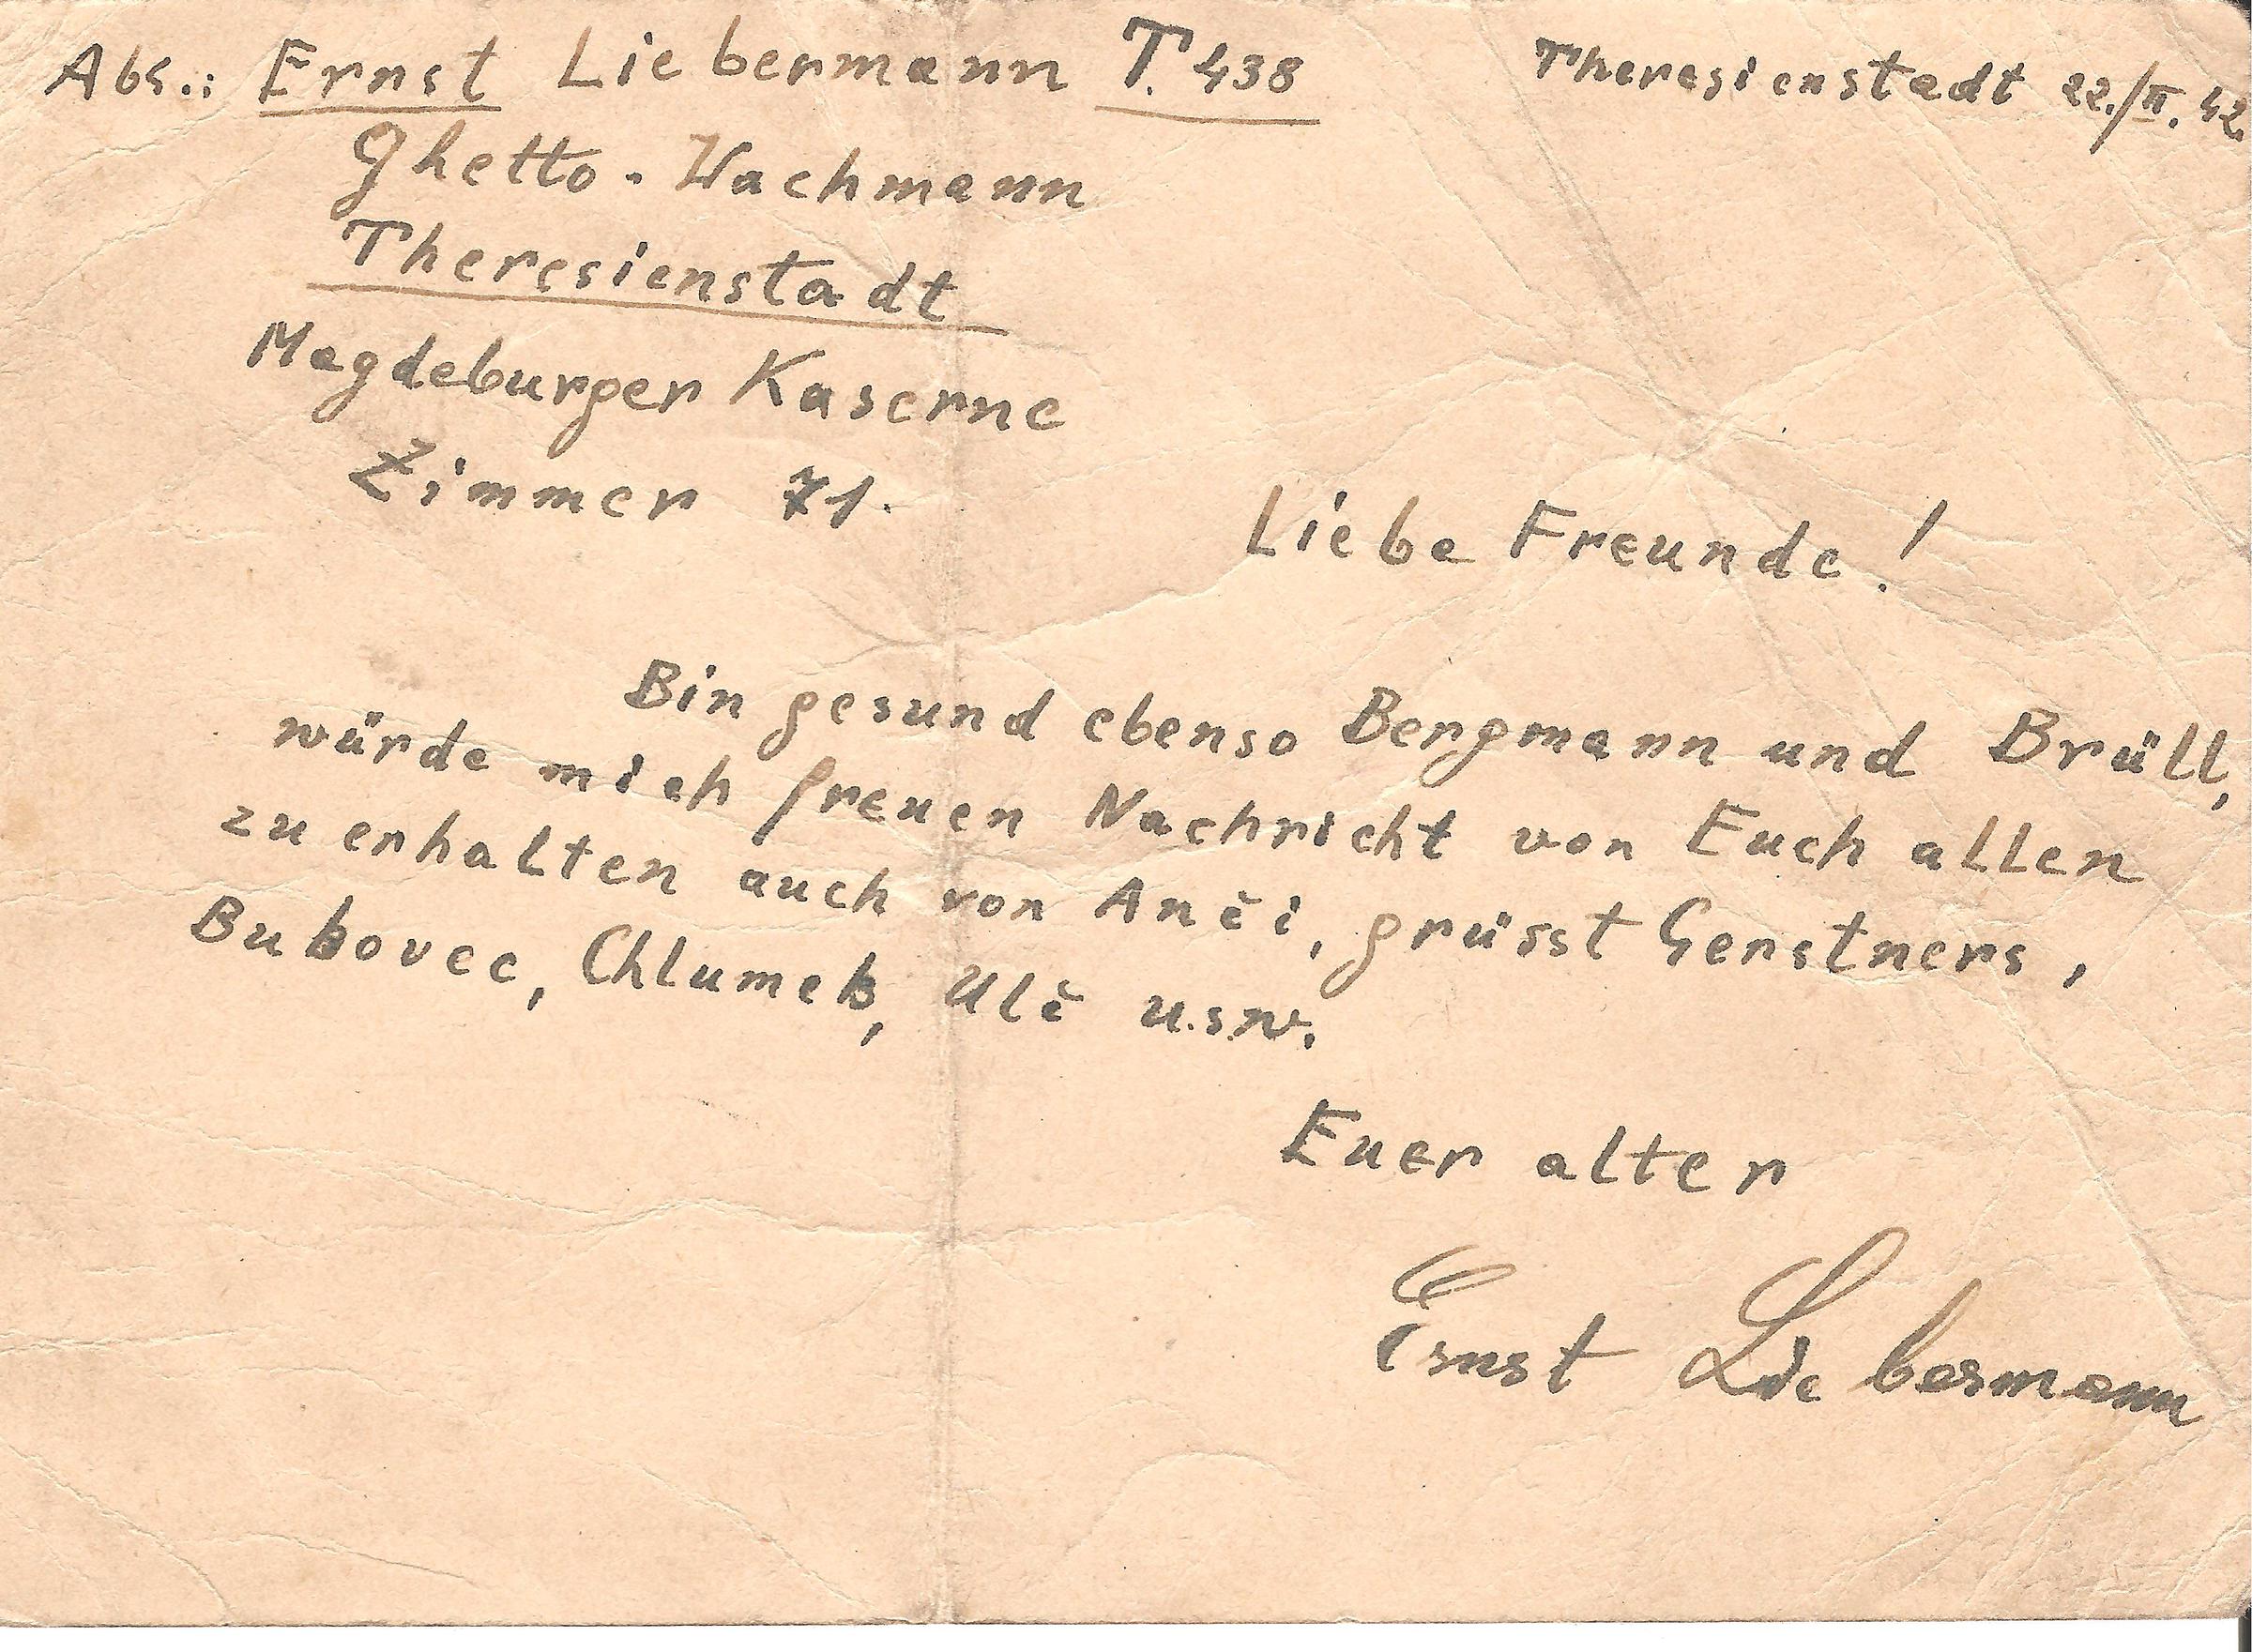 Abs.: Ernst Liebermann T. 438
Theresienstadt 22./II. 42.
Ghetto-Wachmann
Theresienstadt
Magdeburger Kaserne
Zimmer 71.
Liebe Freunde!
Bin gesund ebenso Bergmann und Brüll,
würde mich freuen Nachricht von Euch allen
zu erhalten auch von Anči, grüsst Gerstners,
Bukovec, Chlumek, Ulč u.s.w.
Euer alter
Ernst Liebermann